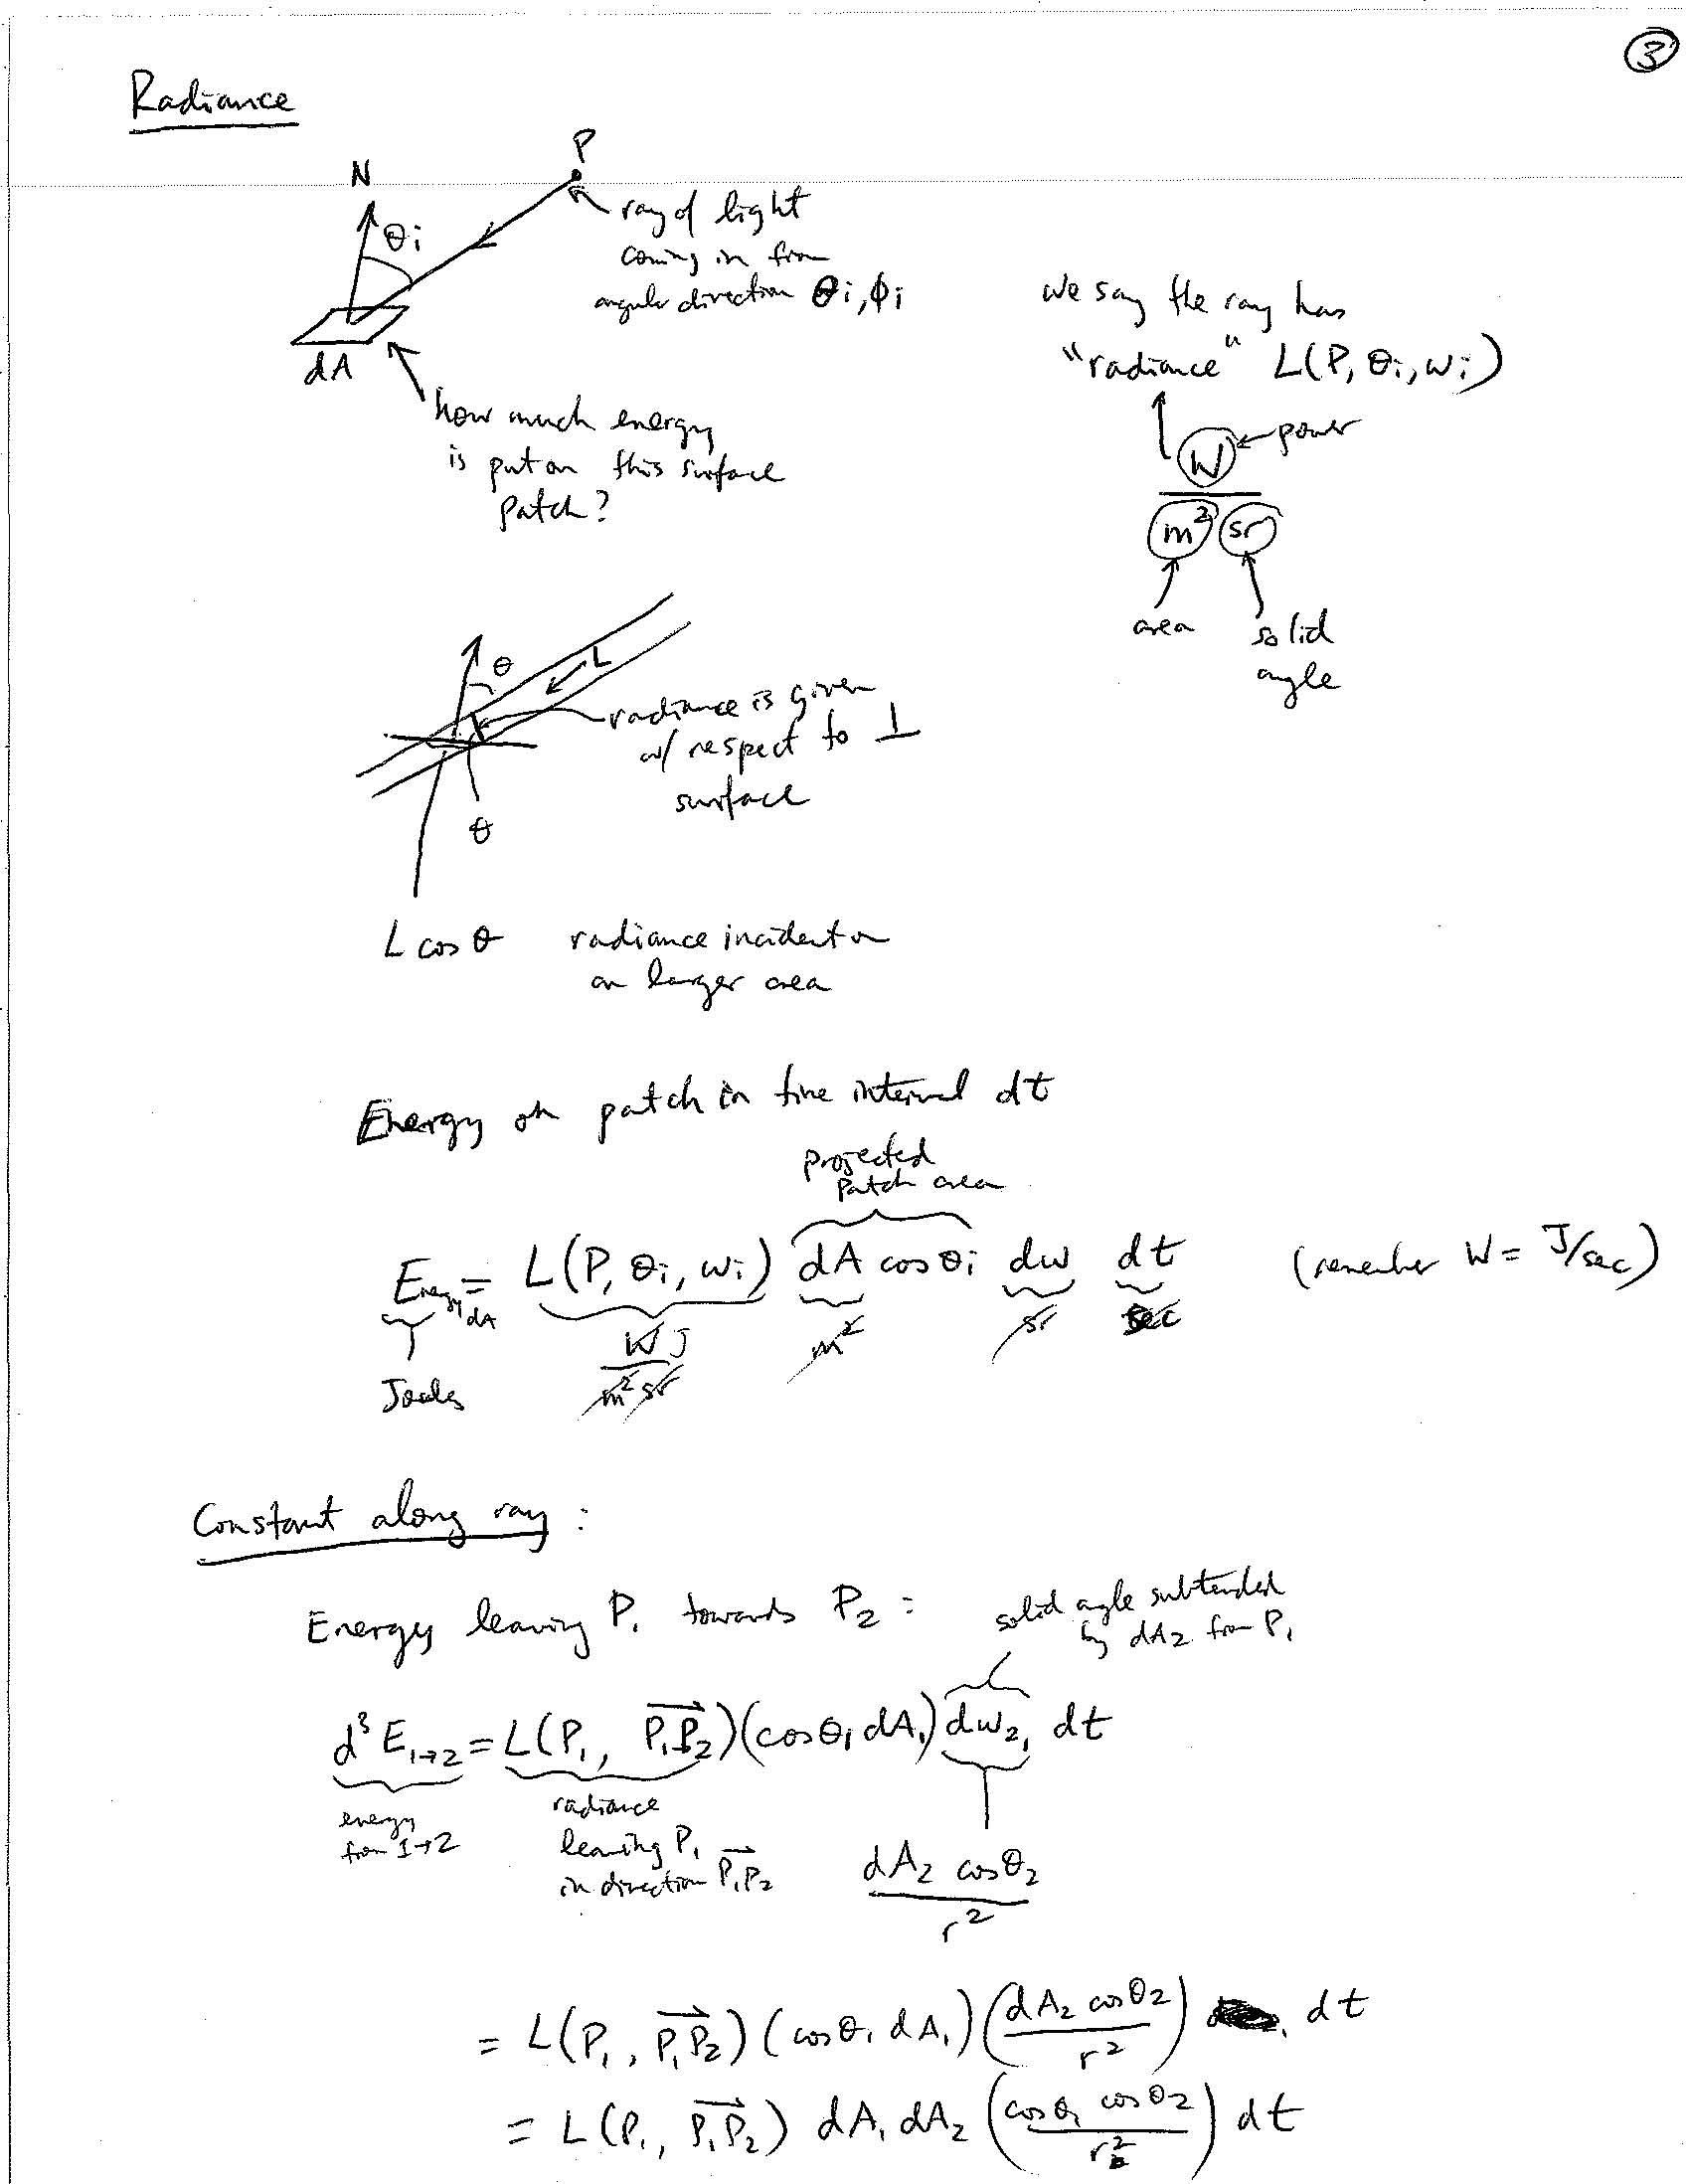 3
Radiance
P
N
θi
ray of light
coming in from
angular direction θi, ϕi
dA
how much energy
is put on this surface
patch?
we say the ray has
"radiance" L(P, θi, ωi)
W
power
m² sr
area
solid
angle
θ
L
radiance is given
w/ respect to ⊥
surface
θ
L cos θ radiance incident on
on larger area
Energy on patch in time interval dt
projected
patch area
Energy dA = L(P, θi, ωi) dA cos θi dω dt (remember W = J/sec)
W J
m² sr
m²
sr
sec
Joules
Constant along ray:
Energy leaving P₁ towards P₂ :
solid angle subtended
by dA₂ from P₁
d³E₁→₂ = L(P₁, P₁P₂)(cosθ₁ dA₁) dω₂₁ dt
energy
from 1→2
radiance
leaving P₁
in direction P₁P₂
dA₂ cosθ₂
r²
= L(P₁, P₁P₂)(cosθ₁ dA₁)(dA₂ cosθ₂ / r²) dt
= L(P₁, P₁P₂) dA₁ dA₂ (cosθ₁ cosθ₂ / r²) dt